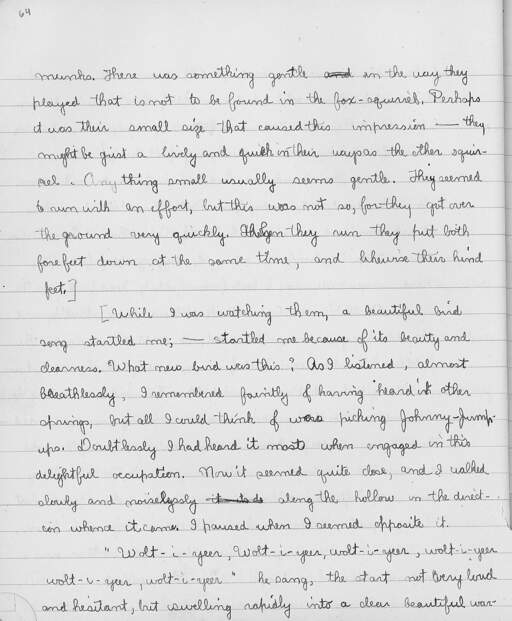 64
munks. There was something gentle and in the way they
played that is not to be found in the fox-squirrel. Perhaps
it was their small size that caused this impression — they
might be just a lively and quick in their ways as the other squir-
rel. Any thing small usually seems gentle. They seemed
to run with an effort, but this was not so, for they got over
the ground very quickly. When they run they put both
forefeet down at the same time, and likewise their hind
feet.]
[While I was watching them, a beautiful bird
song startled me; — startled me because of its beauty and
clearness. What new bird was this? As I listened, almost
breathlessly, I remembered faintly of having heard it other
springs, but all I could think of was picking Johnny-Jump-
ups. Doubtlessly I had heard it most when engaged in this
delightful occupation. Now it seemed quite close, and I walked
slowly and noiselessly along the hollow in the direct-
ion whence it came. I paused when I seemed opposite it.
"Wolt-i-yeer, Wolt-i-yeer, wolt-i-yeer, wolt-i-yeer
wolt-i-yeer, wolt-i-yeer" he sang, the start not very loud
and hesitant, but swelling rapidly into a clear beautiful war-